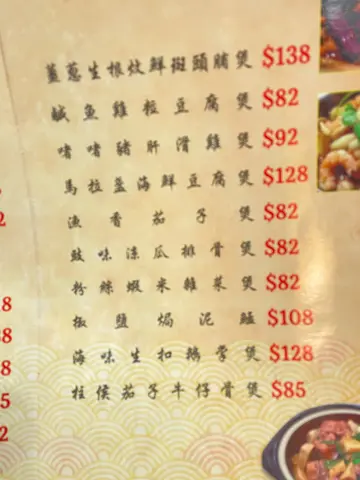 薑蔥生根炆鮮斑頭腩煲 $138
鹹魚雞粒豆腐煲 $82
啫啫豬肝滑雞煲 $92
馬拉盞海鮮豆腐煲 $128
漁香茄子煲 $82
豉味涼瓜排骨煲 $82
粉絲蝦米雜菜煲 $82
椒鹽焗泥鯭 $108
海味生扣鵝掌煲 $128
柱侯茄子牛仔骨煲 $85